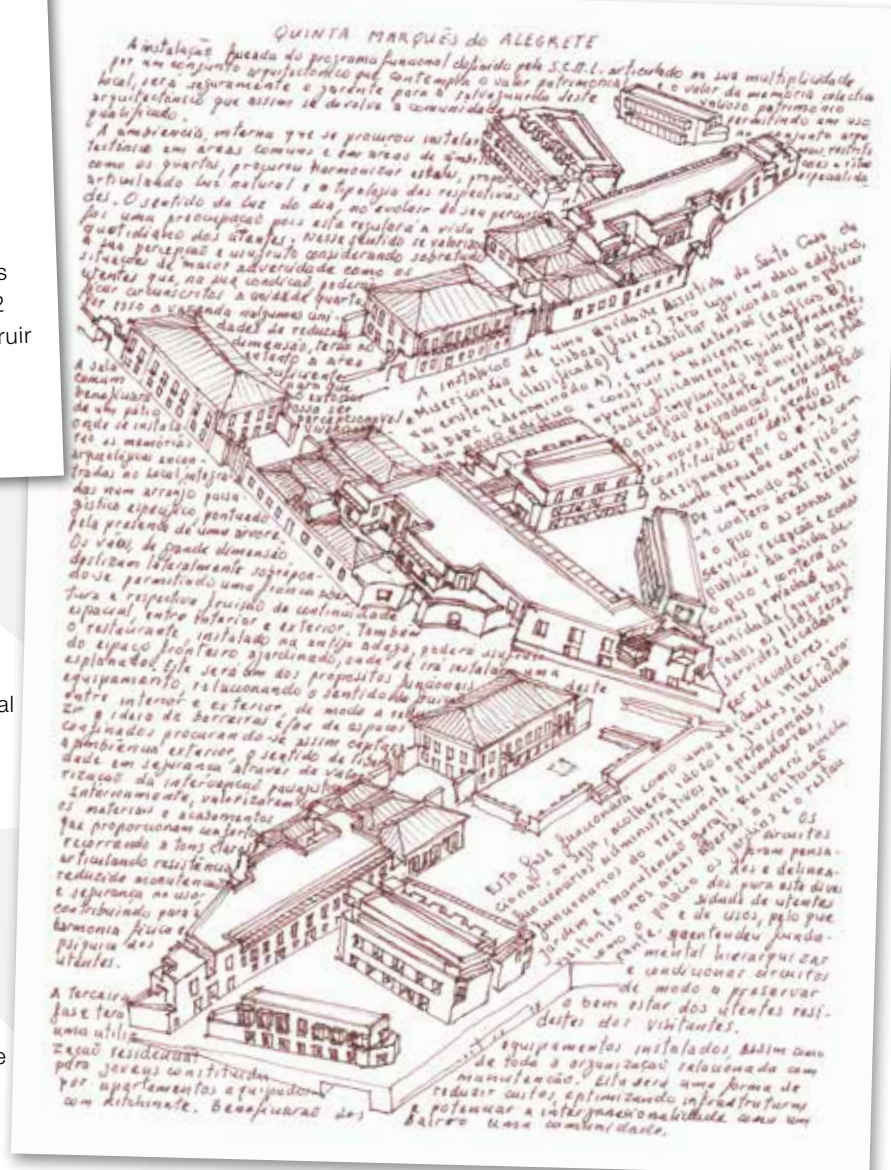 s
2
ruir
al
e
QUINTA MARQUÊS do ALEGRETE
A instalação faseada do programa funcional definido pela S.C.M.L. articulado na sua multiplicidade
por um conjunto arquitectónico que contempla o valor patrimonial e o valor da memória colectiva
local, será seguramente o garante para a salvaguarda deste valioso património
arquitectónico que assim se devolve à comunidade permitindo um uso
qualificado.
A ambiencia interna que se procurou instalar no conjunto arqui
tectónico em áreas comuns e em áreas de âmbito
como os quartos, procurou harmonizar
articulando luz natural e a tipologia das respectivas
des. O sentido da luz do dia, no evoluir do seu percurso
foi uma preocupação pois esta regulará a vida
quotidiana dos utentes. Nesse sentido se valorizou
a sua percepção e usufruto considerando sobretudo
situações de maior adversidade como os
utentes que, na sua condição poderão
ficar circunscritos à unidade quarto,
Por isso a varanda nalgumas uni
dades de reduzida
dimensão, terá
suficiente
para que
o exterior
possa ser
percepcionável
A sala
comum
beneficiará
de um pátio
onde se instala
rão as memórias
arqueológicas encon
tradas no local, integra
das num arranjo paisa
gístico específico, pontuado
pela presença de uma árvore.
Os vãos, de grande dimensão
deslizam lateralmente sobrepon-
do-se permitindo uma franca aber
tura e respectiva fruição de continuidade
espacial, entre interior e exterior. Também
o restaurante, instalado na antiga adega poderá usufruir
do espaço fronteiro ajardinado, onde se irá instalar uma
esplanada. Este será um dos propósitos funcionais deste
equipamento, relacionando o sentido de fruição
entre interior e exterior, de modo a redu
zir a ideia de barreiras e/ou de espaços
confinados procurando-se assim captar
a ambiência exterior, o sentido de liber
dade em segurança através da valo
rização da intervenção paisagística
Interiormente, valorizaram
os materiais e acabamentos
que proporcionam conforto
recorrendo a tons claros
articulando resistência,
reduzida manutenção
e segurança no uso
contribuindo para a
harmonia física e
psíquica dos
utentes.
A instalação de uma Unidade Assistida da Santa Casa da
Misericórdia de Lisboa (fase 2) terá lugar em dois edifícios,
um existente (classificado) e a reabilitar de acordo com o parecer
da DGPC (denominado A), e uma sua ampliação (edifício B),
a construir a Nascente, independente,
apenas fisicamente ligado por um pas
sadiço implantado ao nível da
O edifício existente em elevado
grau de degradação, será adaptado
às novas funções, sendo este
constituído por dois pisos
designados por 0 e 1, com
uma pequena cave piso -1
De um modo geral o piso
-1 conterá áreas técnicas
e o piso 0 as zonas de
serviço, recepção e zonas
públicas da unidade.
O piso 1 conterá as
zonas privadas da
unidade (quartos)
Todos os pisos serão
servidos escadas e
por elevadores.
Esta fase funcionará como uma unidade inter-gera
cional, ou seja, acolherá idosos e jovens, incluindo
funcionários administrativos e operacionais,
funcionários do restaurante, lavandarias,
jardim e manutenção geral. Receberá ainda
visitantes nas áreas abertas à visitação
como o palácio os jardins e o restau
rante. Os
circuitos
foram pensa-
dos e delinea-
dos para esta diver
sidade de utentes
e de usos, pelo que
se entendeu funda-
mental hierarquizar
e condicionar circuitos
de modo a preservar
o bem estar dos utentes resi-
destes dos visitantes.
A terceira
fase terá
uma utili
zação residencial
para jovens constituída
por apartamentos equipados
com kitchinete. Beneficiarão dos
equipamentos instalados, assim como
de toda a organização relacionada com
manutenção. Esta será uma forma de
reduzir custos, optimizando infraestruturas
e potenciar a intergeracionalidade como um
Bairro uma comunidade.